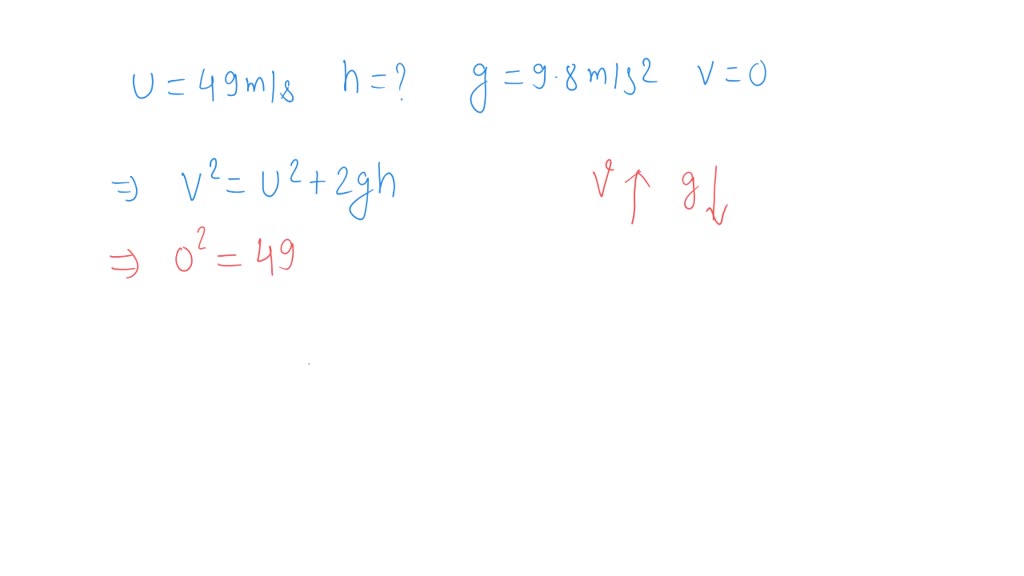 u = 49m/s h = ? g = 9.8m/s2 v = 0
⇒ v² = u² + 2gh v↑ g↓
⇒ 0² = 49